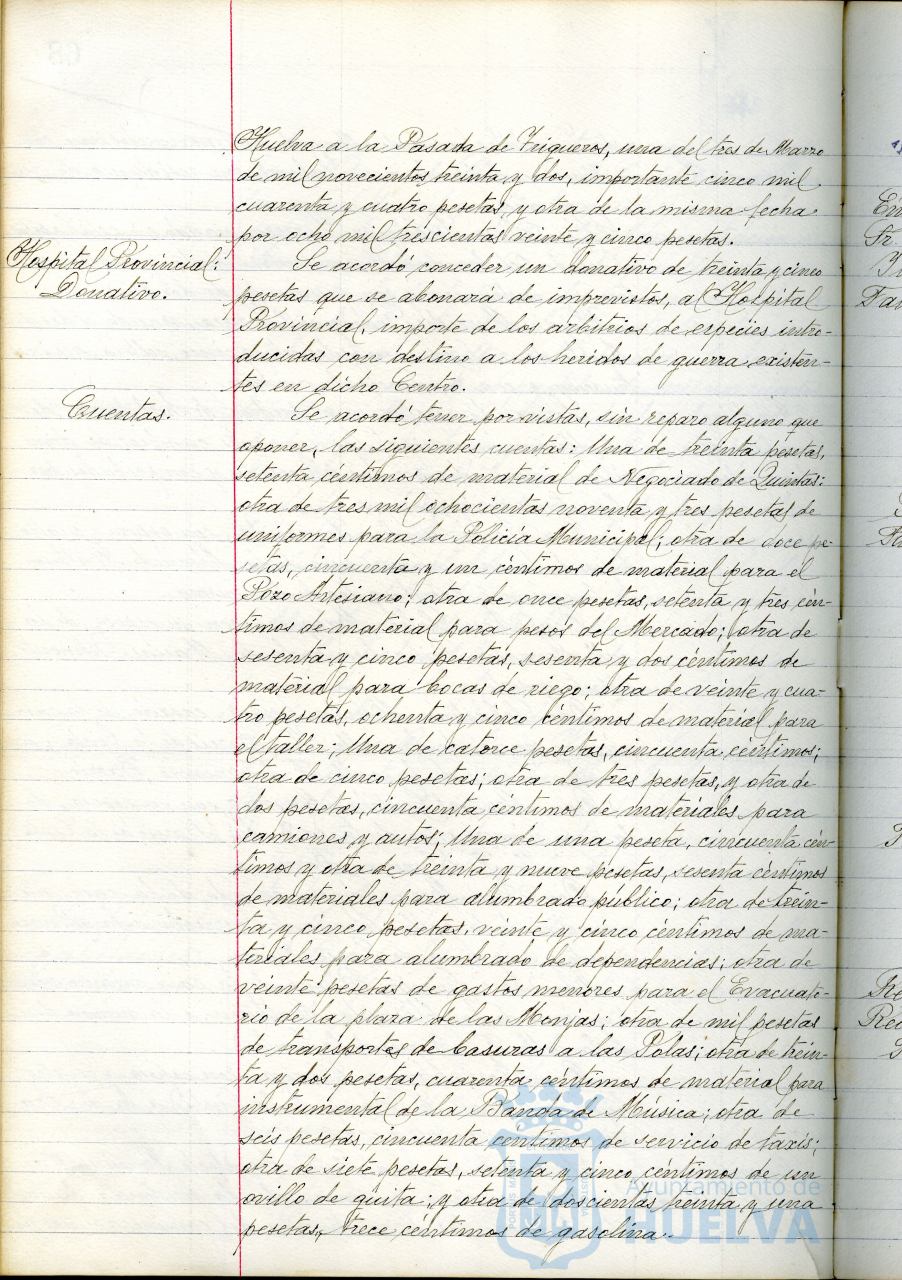 Huelva a la Pasada de Trigueros, una del tres de Marzo
de mil novecientos treinta y dos, importante cinco mil
cuarenta y cuatro pesetas, y otra de la misma fecha
por ocho mil trescientas veinte y cinco pesetas.
Hospital Provincial:
Donativo.
Se acordó conceder un donativo de treinta y cinco
pesetas que se abonará de imprevistos, al Hospital
Provincial, importe de los arbitrios de especies intro-
ducidas con destino a los heridos de guerra existen-
tes en dicho Centro.
Cuentas.
Se acordó tener por vistas, sin reparo alguno que
oponer, las siguientes cuentas: Una de treinta pesetas,
setenta céntimos de material de Negociado de Quintas;
otra de tres mil ochocientas noventa y tres pesetas de
uniformes para la Policía Municipal; otra de doce pe-
setas, cincuenta y un céntimos de material para el
Pozo Artesiano; otra de once pesetas, setenta y tres cén-
timos de material para pesos del Mercado; otra de
sesenta y cinco pesetas, sesenta y dos céntimos de
material para bocas de riego; otra de veinte y cua-
tro pesetas, ochenta y cinco céntimos de material para
el taller; Una de catorce pesetas, cincuenta céntimos;
otra de cinco pesetas; otra de tres pesetas, y otra de
dos pesetas, cincuenta céntimos de materiales para
camiones y autos; Una de una peseta, cincuenta cén-
timos y otra de treinta y nueve pesetas, sesenta céntimos
de materiales para alumbrado público; otra de trein-
ta y cinco pesetas, veinte y cinco céntimos de ma-
teriales para alumbrado de dependencias; otra de
veinte pesetas de gastos menores para el Evacuato-
rio de la plaza de las Monjas; otra de mil pesetas
de transportes de basuras a las Polas; otra de trein-
ta y dos pesetas, cuarenta céntimos de material para
instrumental de la Banda de Música; otra de
seis pesetas, cincuenta céntimos de servicio de taxis;
otra de siete pesetas, setenta y cinco céntimos de un
ovillo de guita; y otra de doscientas treinta y una
pesetas, trece centimos de gasolina.
Ayuntamiento de
HUELVA